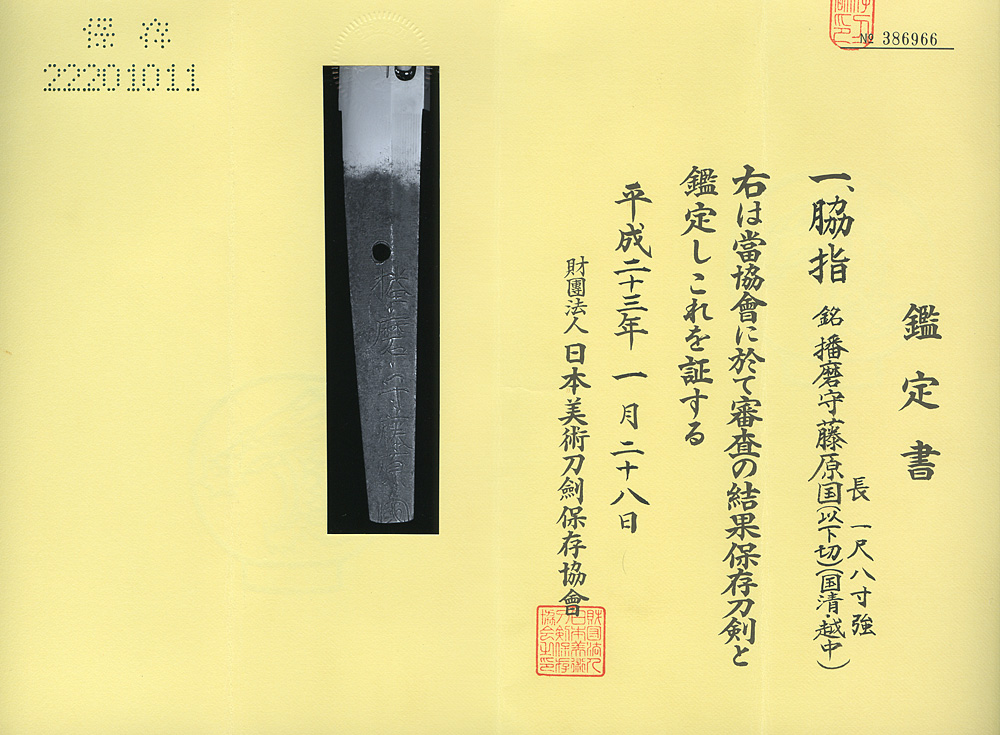 保存
22201011
№ 386966
鑑定書
一、脇指 銘 播磨守藤原国(以下切)(国清・越中)
長 一尺八寸強
右は當協會に於て審査の結果保存刀剣と
鑑定しこれを証する
平成二十三年 一月二十八日
財團法人 日本美術刀劍保存協會